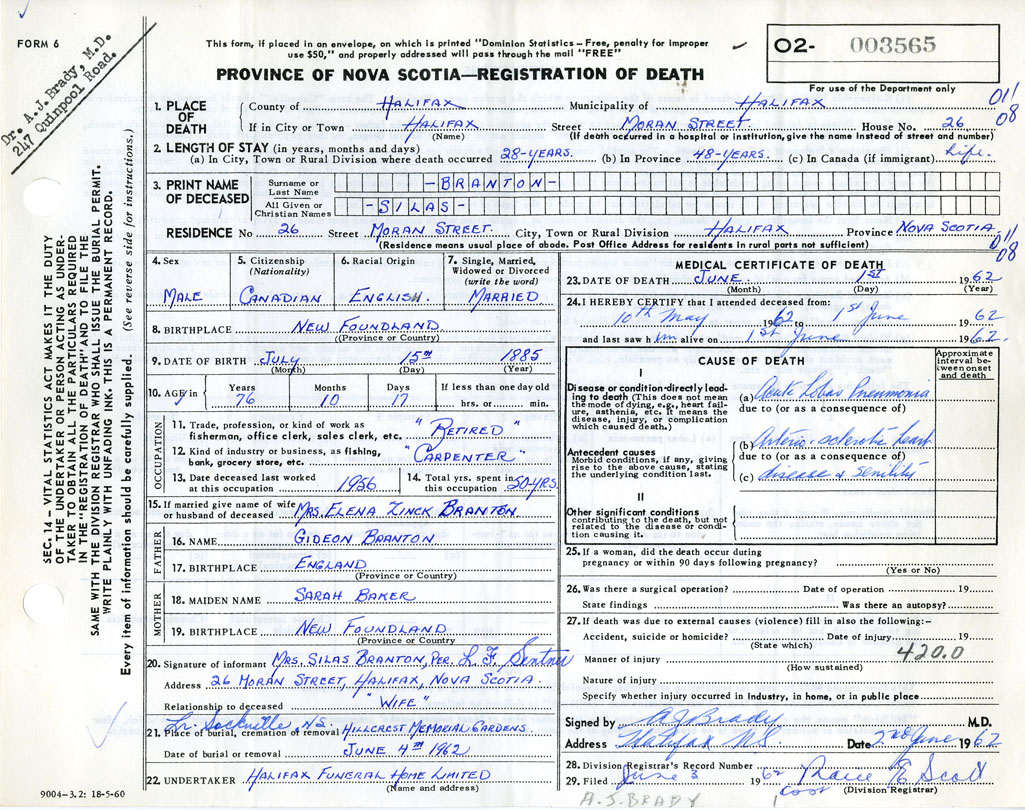 FORM 6
Dr. A. J. Brady, M.D.
247 Quinpool Road.
This form, if placed in an envelope, on which is printed "Dominion Statistics – Free, penalty for improper
use $50," and properly addressed will pass through the mail "FREE"
PROVINCE OF NOVA SCOTIA—REGISTRATION OF DEATH
O2- 003565
For use of the Department only
SEC. 14 – VITAL STATISTICS ACT MAKES IT THE DUTY
OF THE UNDERTAKER OR PERSON ACTING AS UNDER-
TAKER TO OBTAIN ALL THE PARTICULARS REQUIRED
IN THE "REGISTRATION OF DEATH" AND TO FILE THE
SAME WITH THE DIVISION REGISTRAR WHO SHALL ISSUE THE BURIAL PERMIT.
WRITE PLAINLY WITH UNFADING INK. THIS IS A PERMANENT RECORD.
Every item of information should be carefully supplied. (See reverse side for instructions.)
1. PLACE OF DEATH
County of HALIFAX Municipality of HALIFAX 011
If in City or Town HALIFAX Street MORAN STREET. House No. 26 08
(Name) (If death occurred in a hospital or institution, give the name instead of street and number)
2. LENGTH OF STAY (in years, months and days)
(a) In City, Town or Rural Division where death occurred 28-YEARS. (b) In Province 48-YEARS. (c) In Canada (if immigrant) Life.
3. PRINT NAME OF DECEASED
Surname or Last Name -BRANTON-
All Given or Christian Names -SILAS-
RESIDENCE No 26 Street MORAN STREET. City, Town or Rural Division HALIFAX Province NOVA SCOTIA. 011
(Residence means usual place of abode. Post Office Address for residents in rural parts not sufficient) 08
4. Sex
MALE
5. Citizenship (Nationality)
CANADIAN
6. Racial Origin
ENGLISH
7. Single, Married, Widowed or Divorced (write the word)
MARRIED
8. BIRTHPLACE NEW FOUNDLAND
(Province or Country)
9. DATE OF BIRTH JULY 15TH 1885
(Month) (Day) (Year)
10. AGE in Years Months Days If less than one day old
76 10 17 hrs. or min.
OCCUPATION
11. Trade, profession, or kind of work as
fisherman, office clerk, sales clerk, etc. "RETIRED"
12. Kind of industry or business, as fishing,
bank, grocery store, etc. "CARPENTER"
13. Date deceased last worked
at this occupation 1956
14. Total yrs. spent in
this occupation 50-YRS.
15. If married give name of wife
or husband of deceased MRS. ELENA ZINCK BRANTON
FATHER
16. NAME GIDEON BRANTON
17. BIRTHPLACE ENGLAND
(Province or Country)
MOTHER
18. MAIDEN NAME SARAH BAKER
19. BIRTHPLACE NEW FOUNDLAND
(Province or Country
20. Signature of informant MRS. SILAS BRANTON, PER. L. F. Sentner
Address 26 MORAN STREET, HALIFAX, NOVA SCOTIA.
Relationship to deceased "WIFE"
Lr. Sackville, N.S.
21. Place of burial, cremation or removal HILLCREST MEMORIAL GARDENS.
Date of burial or removal JUNE 4TH 1962
22. UNDERTAKER HALIFAX FUNERAL HOME LIMITED
(Name and address)
9004–3.2: 18-5-60
MEDICAL CERTIFICATE OF DEATH
23. DATE OF DEATH JUNE. 1ST 1962
(Month) (Day) (Year)
24. I HEREBY CERTIFY that I attended deceased from:
10th May 1962 to 1st June 1962
and last saw him alive on 1st June 1962.
CAUSE OF DEATH
Approximate interval between onset and death
I
Disease or condition directly lead-
ing to death (This does not
mean the mode of dying, eg., heart fail-
ure, asthenia, etc. It means the
disease, injury, or complication
which caused death.)
(a) Acute Lobar Pneumonia
due to (or as a consequence of)
Antecedent causes
Morbid conditions, if any, giving
rise to the above cause, stating
the underlying condition last.
(b) Arterio-sclerotic heart
due to (or as a consequence of)
(c) disease & Senility
II
Other significant conditions
contributing to the death, but not
related to the disease or condi-
tion causing it.
25. If a woman, did the death occur during
pregnancy or within 90 days following pregnancy?
(Yes or No)
26. Was there a surgical operation? Date of operation 19
State findings Was there an autopsy?
27. If death was due to external causes (violence) fill in also the following:–
Accident, suicide or homicide? Date of injury 19
(State which)
Manner of injury 420.0
(How sustained)
Nature of injury
Specify whether injury occurred in industry, in home, or in public place
Signed by A J Brady M.D.
Address Halifax N.S. Date 2nd June 1962
28. Division Registrar's Record Number
29. Filed June 3 1962
(Division Registrar)
A.J. BRADY